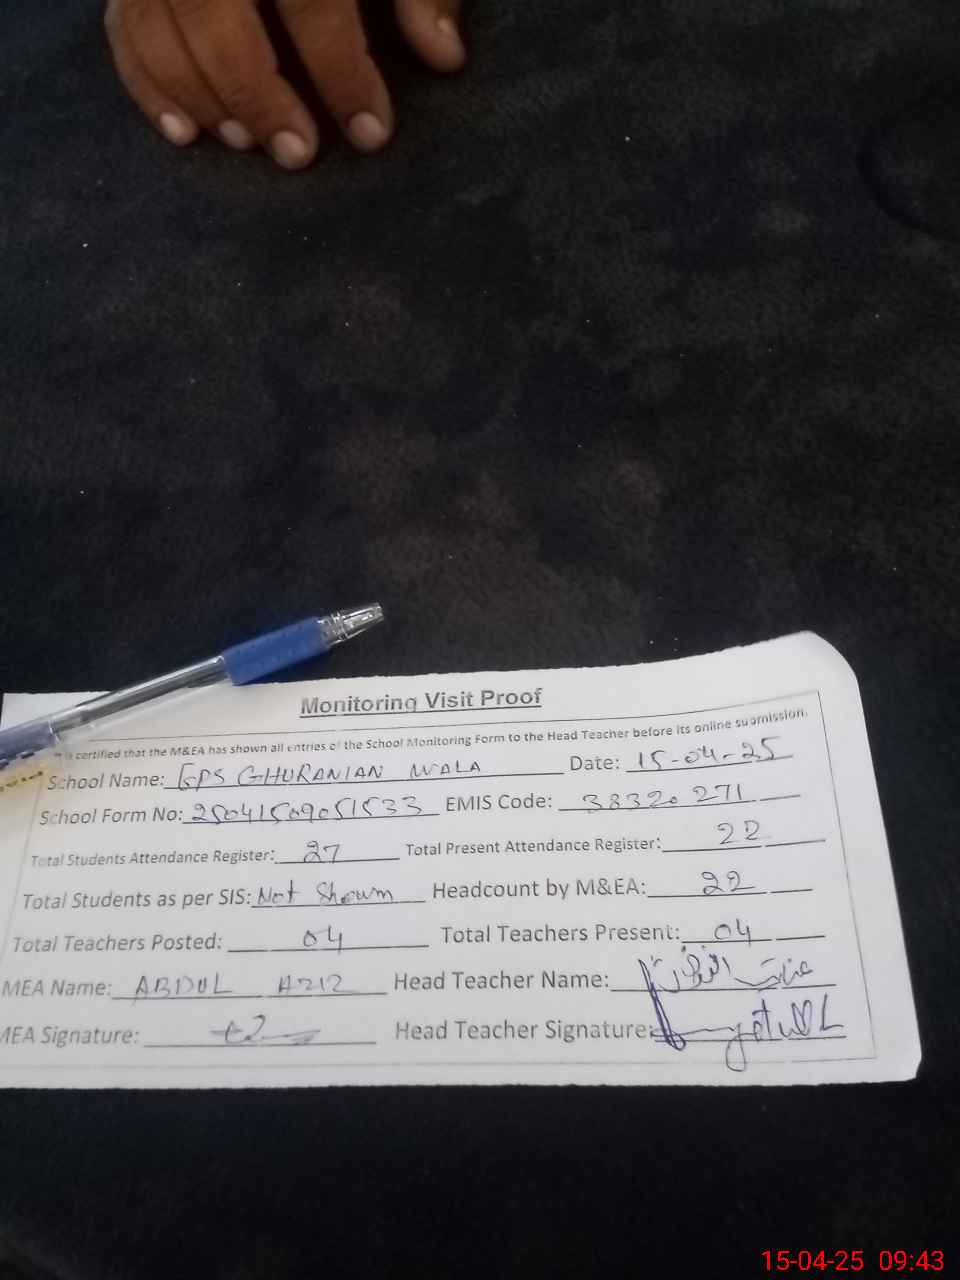 Monitoring Visit Proof
is certified that the M&EA has shown all entries of the School Monitoring Form to the Head Teacher before its online submission.
School Name: GPS GHURANIAN WALA Date: 15-04-25
School Form No: 25041509051533 EMIS Code: 38320271
Total Students Attendance Register: 27 Total Present Attendance Register: 22
Total Students as per SIS: Not Shown Headcount by M&EA: 22
Total Teachers Posted: 04 Total Teachers Present: 04
MEA Name: ABDUL AZIZ Head Teacher Name:
MEA Signature: Head Teacher Signature:
15-04-25 09:43